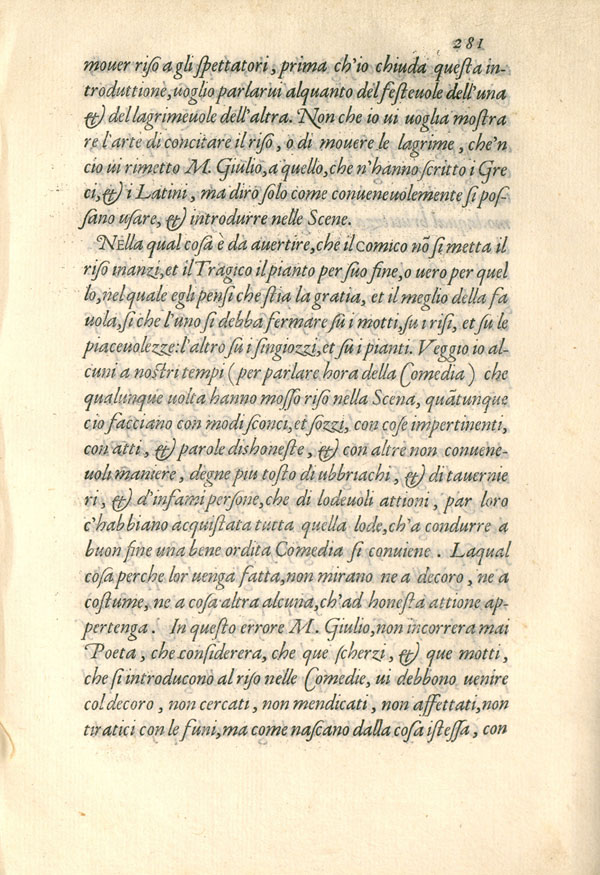 281
mouer riso a gli spettatori, prima ch'io chiuda questa in-
troduttione, uoglio parlarui alquanto del festeuole dell'una
& del lagrimeuole dell'altra. Non che io ui uoglia mostra
re l'arte di concitare il riso, o di mouere le lagrime, che'n
cio ui rimetto M. Giulio, a quello, che n'hanno scritto i Gre
ci, & i Latini, ma diro solo come conueneuolemente si pos-
sano usare, & introdurre nelle Scene.
Nella qual cosa è da auertire, che il comico nõ si metta il
riso inanzi, et il Tragico il pianto per suo fine, o uero per quel
lo, nel quale egli pensi che stia la gratia, et il meglio della fa
uola, si che l'uno si debba fermare sù i motti, su i risi, et su le
piaceuolezze: l'altro sù i singiozzi, et sù i pianti. Veggio io al-
cuni a nostri tempi (per parlare hora della Comedia) che
qualunque uolta hanno mosso riso nella Scena, quãtunque
cio facciano con modi sconci, et sozzi, con cose impertinenti,
con atti, & parole dishoneste, & con altre non conuene-
uoli maniere, degne piu tosto di ubbriachi, & di tauernie
ri, & d'infami persone, che di lodeuoli attioni, par loro
c'habbiano acquistata tutta quella lode, ch'a condurre a
buon fine una bene ordita Comedia si conuiene. Laqual
cosa perche lor uenga fatta, non mirano ne a decoro, ne a
costume, ne a cosa altra alcuna, ch'ad honesta attione ap-
pertenga. In questo errore M. Giulio, non incorrera mai
Poeta, che considerera, che que scherzi, & que motti,
che si introducono al riso nelle Comedie, ui debbono uenire
col decoro, non cercati, non mendicati, non affettati, non
tiratici con le funi, ma come nascano dalla cosa istessa, con